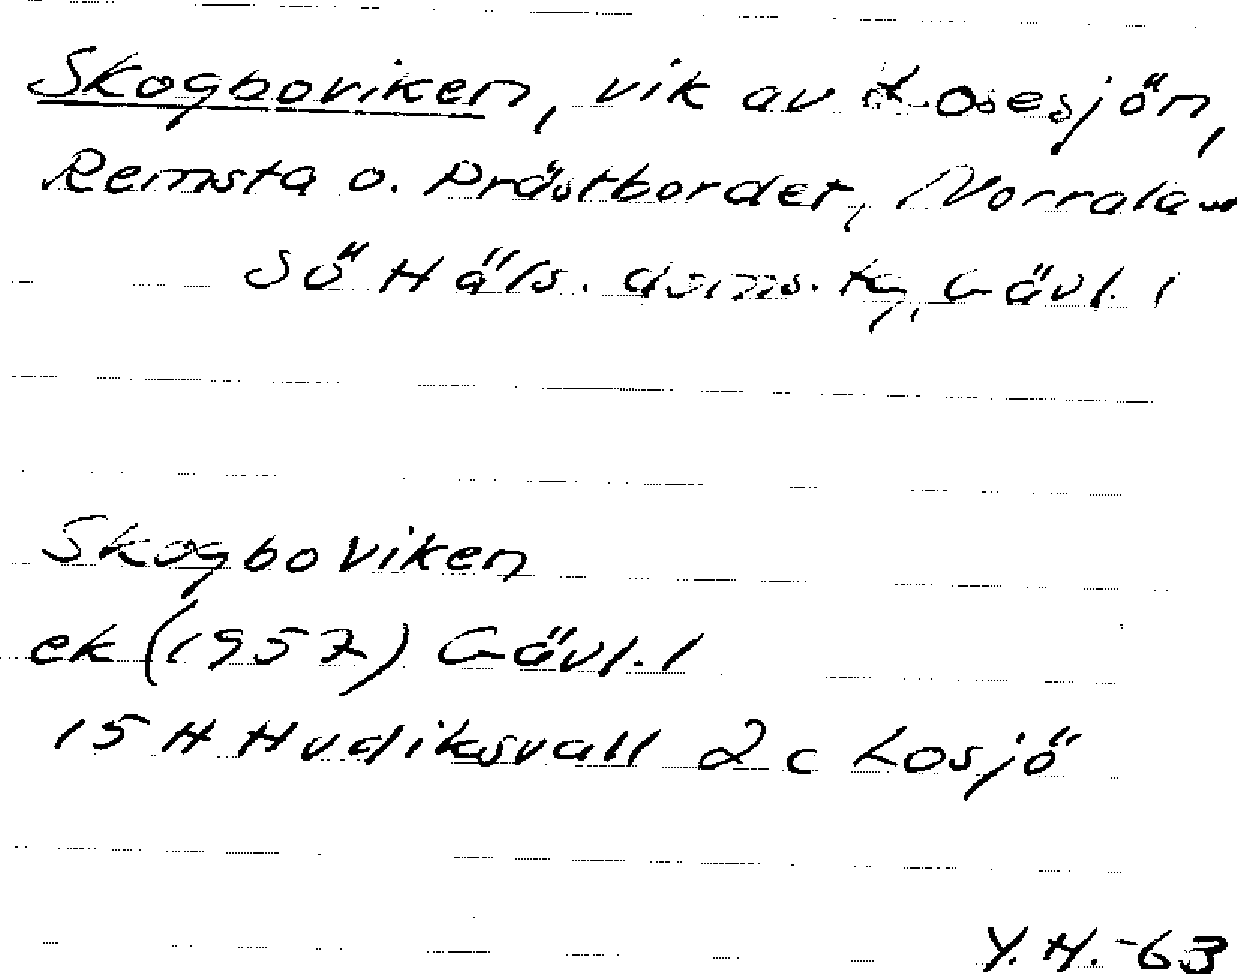 Skogboviken, vik av Losesjön,
Remsta o. Prästbordet, Norrala
SöHäls. doms. tg, Gävl. l
Skogboviken
ek (1957) Gävl. l
15H Hudiksvall 2c Losjö
Y.H.-63